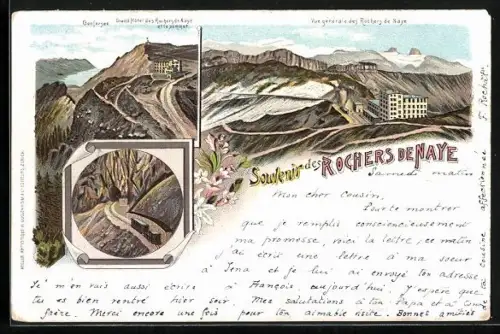 Genfersee
Grand Hôtel des Rochers de Naye
et le sommet
Vue générale des Rochers de Naye
Souvenir des ROCHERS DE NAYE
Samedi matin
Mon cher cousin,
Pour te montrer
que je remplis consciencieusement
ma promesse, voici la lettre, ce matin
j'ai écrit une lettre à ma soeur
à Jena et je lui ai envoyé ton adresse.
Je m'en vais aussi écrire à François aujourd'hui. J'espère que
tu es bien rentré hier soir. Mes salutations à ton Papa et à ton
frère. Merci encore une fois pour ton aimable visite. Bonnes amitiés
de ta cousine affectionnée
F. Rochat